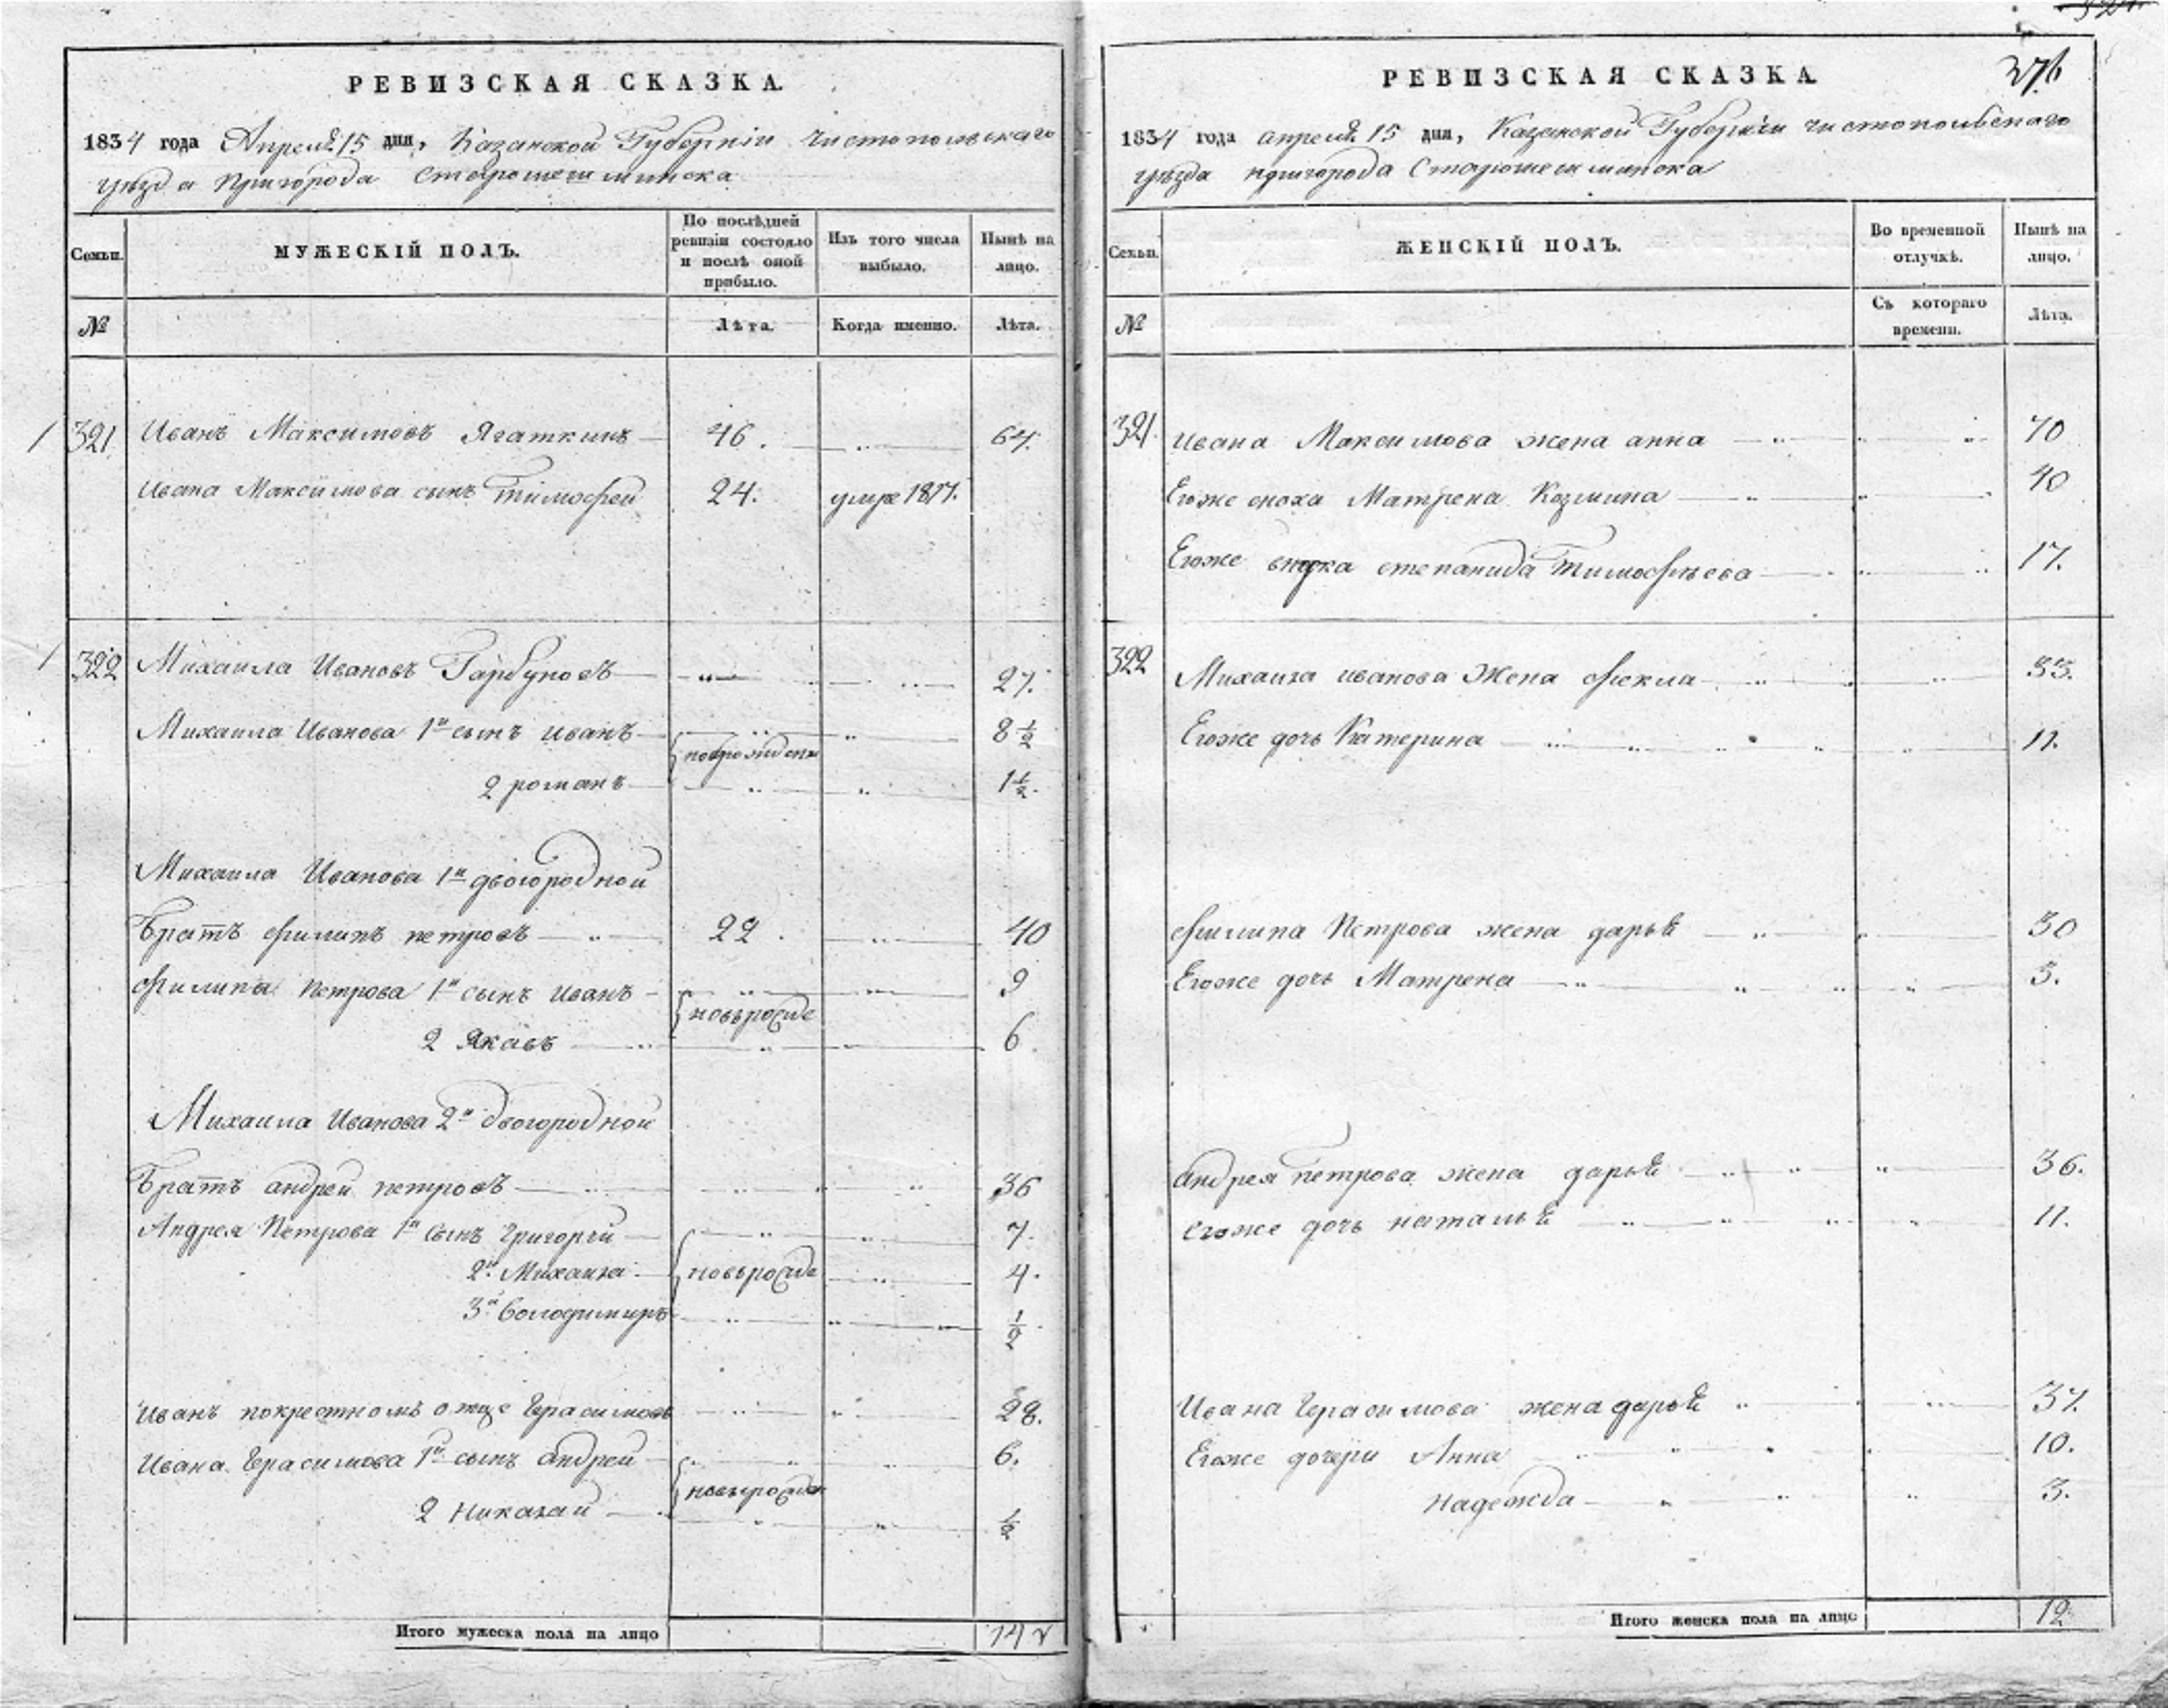 РЕВИЗСКАЯ СКАЗКА.
1834 года Апреля 15 дня, Казанской Губерніи Чистопольскаго
уезда Пригорода Старошешминска
Семьи. МУЖЕСКІЙ ПОЛЪ. По послѣдней ревизіи состояло и послѣ оной прибыло. Изъ того числа выбыло. Нынѣ на лицо.
№ Лѣта. Когда именно. Лѣта.
321 Иванъ Максимовъ Ягаткинъ 46. 64.
Ивана Максимова сынъ Тимофей 24. умре 1817.
322 Михаила Ивановъ Гарбуновъ 27.
Михаила Иванова 1й сынъ Иванъ 8 1/2
новорожден
2 романъ 1 1/2.
Михаила Иванова 1й двоюродной
братъ филипъ петровъ 22. 40
филипа Петрова 1й сынъ Иванъ 9
новърожде
2 Якавъ 6.
Михаила Иванова 2й двоюродной
братъ андрей петровъ 36
Андрея Петрова 1й сынъ Григорій 7.
2й Михаила новърожде 4.
3й володимиръ 1/2
Иванъ покрестномъ отце Герасимовъ 28.
Ивана Герасимова 1й сынъ андрей 6.
новърожде
2 Николай 1/2
Итого мужеска пола на лицо 14
РЕВИЗСКАЯ СКАЗКА
376
1834 года апреля 15 дня, Казанской Губерніи чистопольскаго
уезда пригорода Старошешминска
Семьи. ЖЕНСКІЙ ПОЛЪ. Во временной отлучкѣ. Нынѣ на лицо.
№ Съ котораго времени. Лѣта.
321. Ивана Максимова жена анна 70
Егоже сноха Матрена Козмина 40
Егоже внука степанида Тимофѣева 17.
322 Михаила иванова Жена фекла 33.
Егоже дочь Катерина 11.
филипа Петрова жена дарья 30
Егоже дочь Матрена 3.
андрея петрова жена дарья 36.
егоже дочь наталья 11.
Ивана Герасимова жена дарья 37.
Егоже дочери Анна 10.
надежда 3.
Итого женска пола на лицо 12